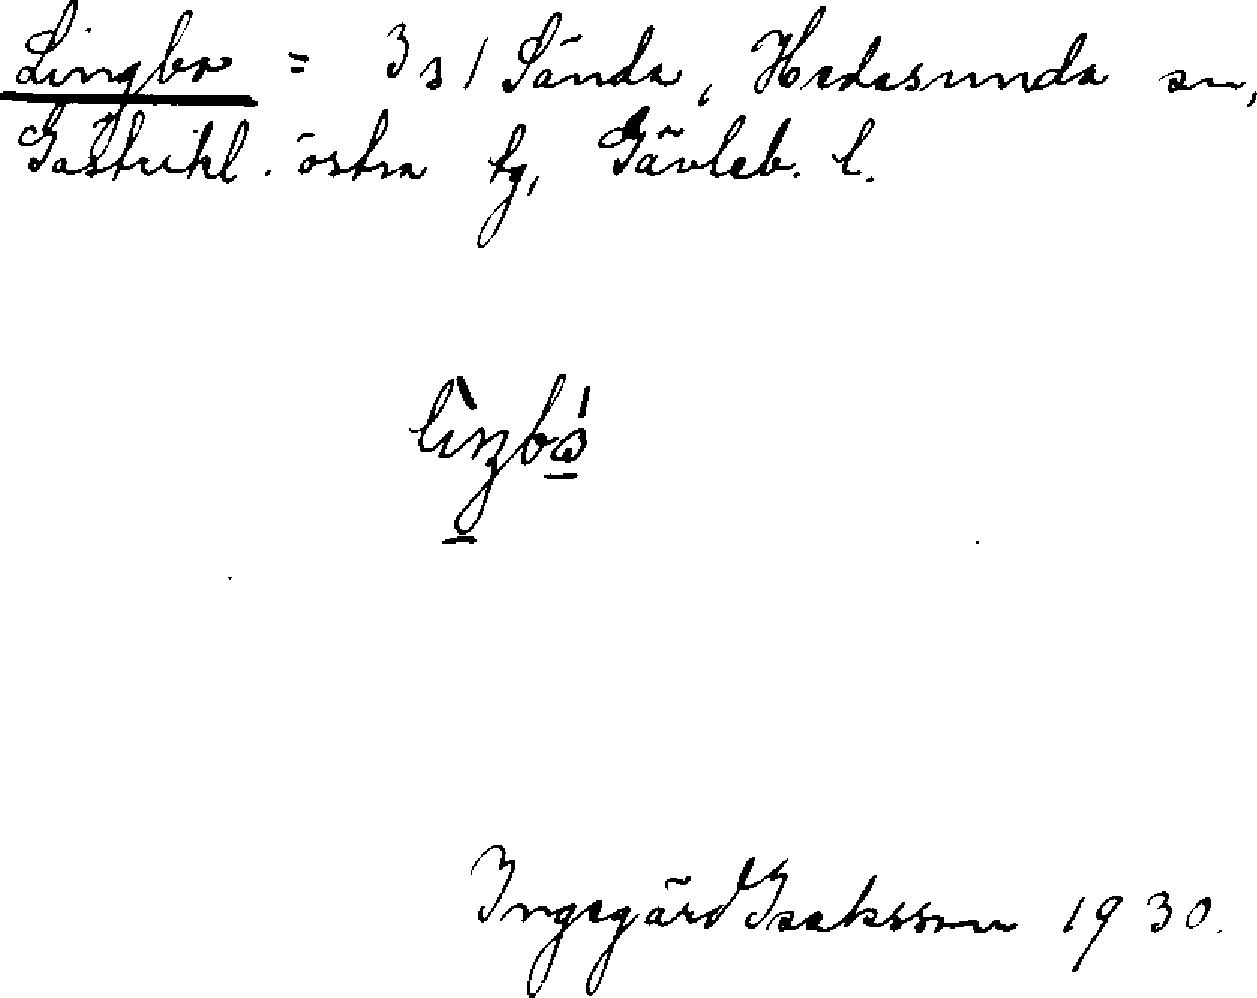 Lingbo = 3 s / Sända, Hedesunda sn,
Gästrikl. östra tg, Gävleb. l.
Ingegärd Isaksson 1930.